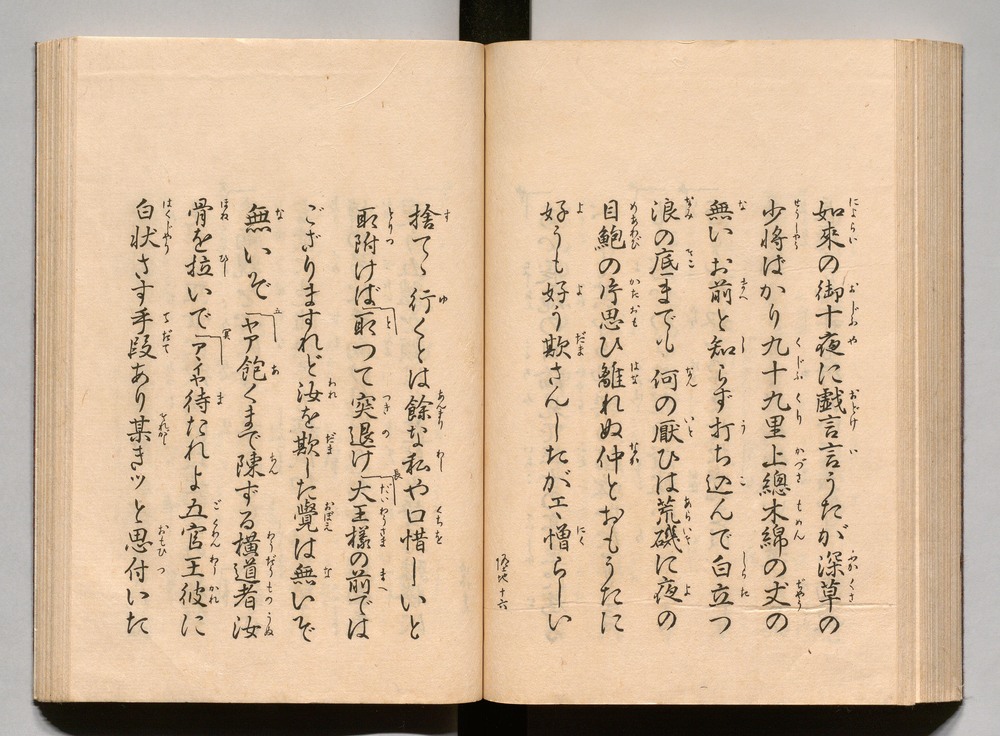 如來の御十夜に戯言言うたが深草の
少將ばかり九十九里上總木綿の丈の
無いお前と知らず打ち込んで白立つ
浪の底までも何の厭ひは荒磯に夜の
目鮑の片思ひ離れぬ仲とおもうたに
好うも好う欺さんしたがエヽ憎らしい
十六
捨てゝ行くとは餘な私や口惜しいと
取附けば取つて突退け大王樣の前では
ござりますれど汝を欺した覺は無いぞ
無いぞヤア飽くまで陳ずる横道者汝
骨を拉いでアヽヤ待たれよ五官王彼に
白状さす手段あり某きッと思付いた